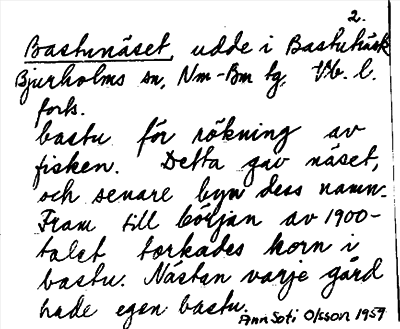 2.
Bastunäset, udde i Bastuträsk
Bjurholms sn, Nm-Bm tg, Vb. l.
forts.
bastu för rökning av
fisken. Detta gav näset,
och senare byn dess namn.
Fram till början av 1900-
talet torkades korn i
bastu. Nästan varje gård
hade egen bastu.
Ann Soti Olsson 1957